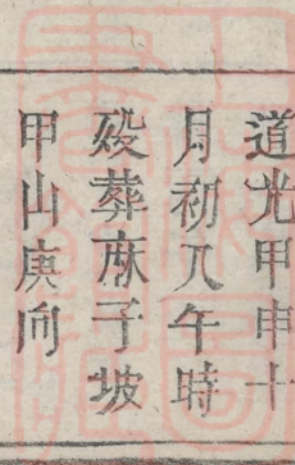 道光甲申十
月初八午時
殁葬麻子坡
甲山庚向